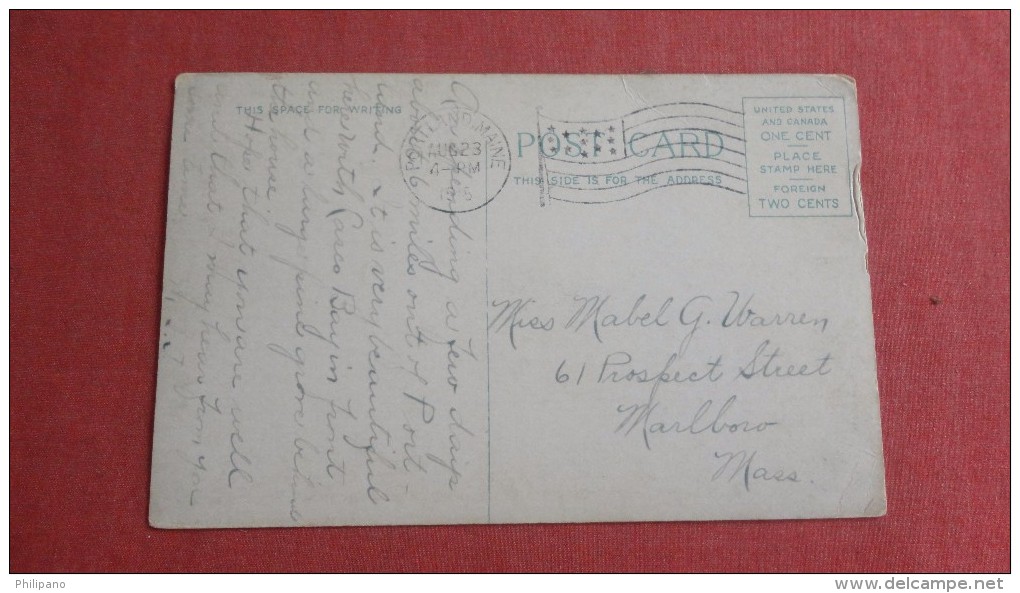 THIS SPACE FOR WRITING
Am spending a few days
about 6 miles out of Port-
land. It is very beautiful
here with Casco Bay in front
and a large pine grove behind
the house.
Hope that you are well
and that I may hear from you
some
MAINE
AUG 23
PM
POST CARD
THIS SIDE IS FOR THE ADDRESS
UNITED STATES
AND CANADA
ONE CENT
PLACE
STAMP HERE
FOREIGN
TWO CENTS
Miss Mabel G. Warren
61 Prospect Street
Marlboro
Mass.
Philipano
www.delcampe.net